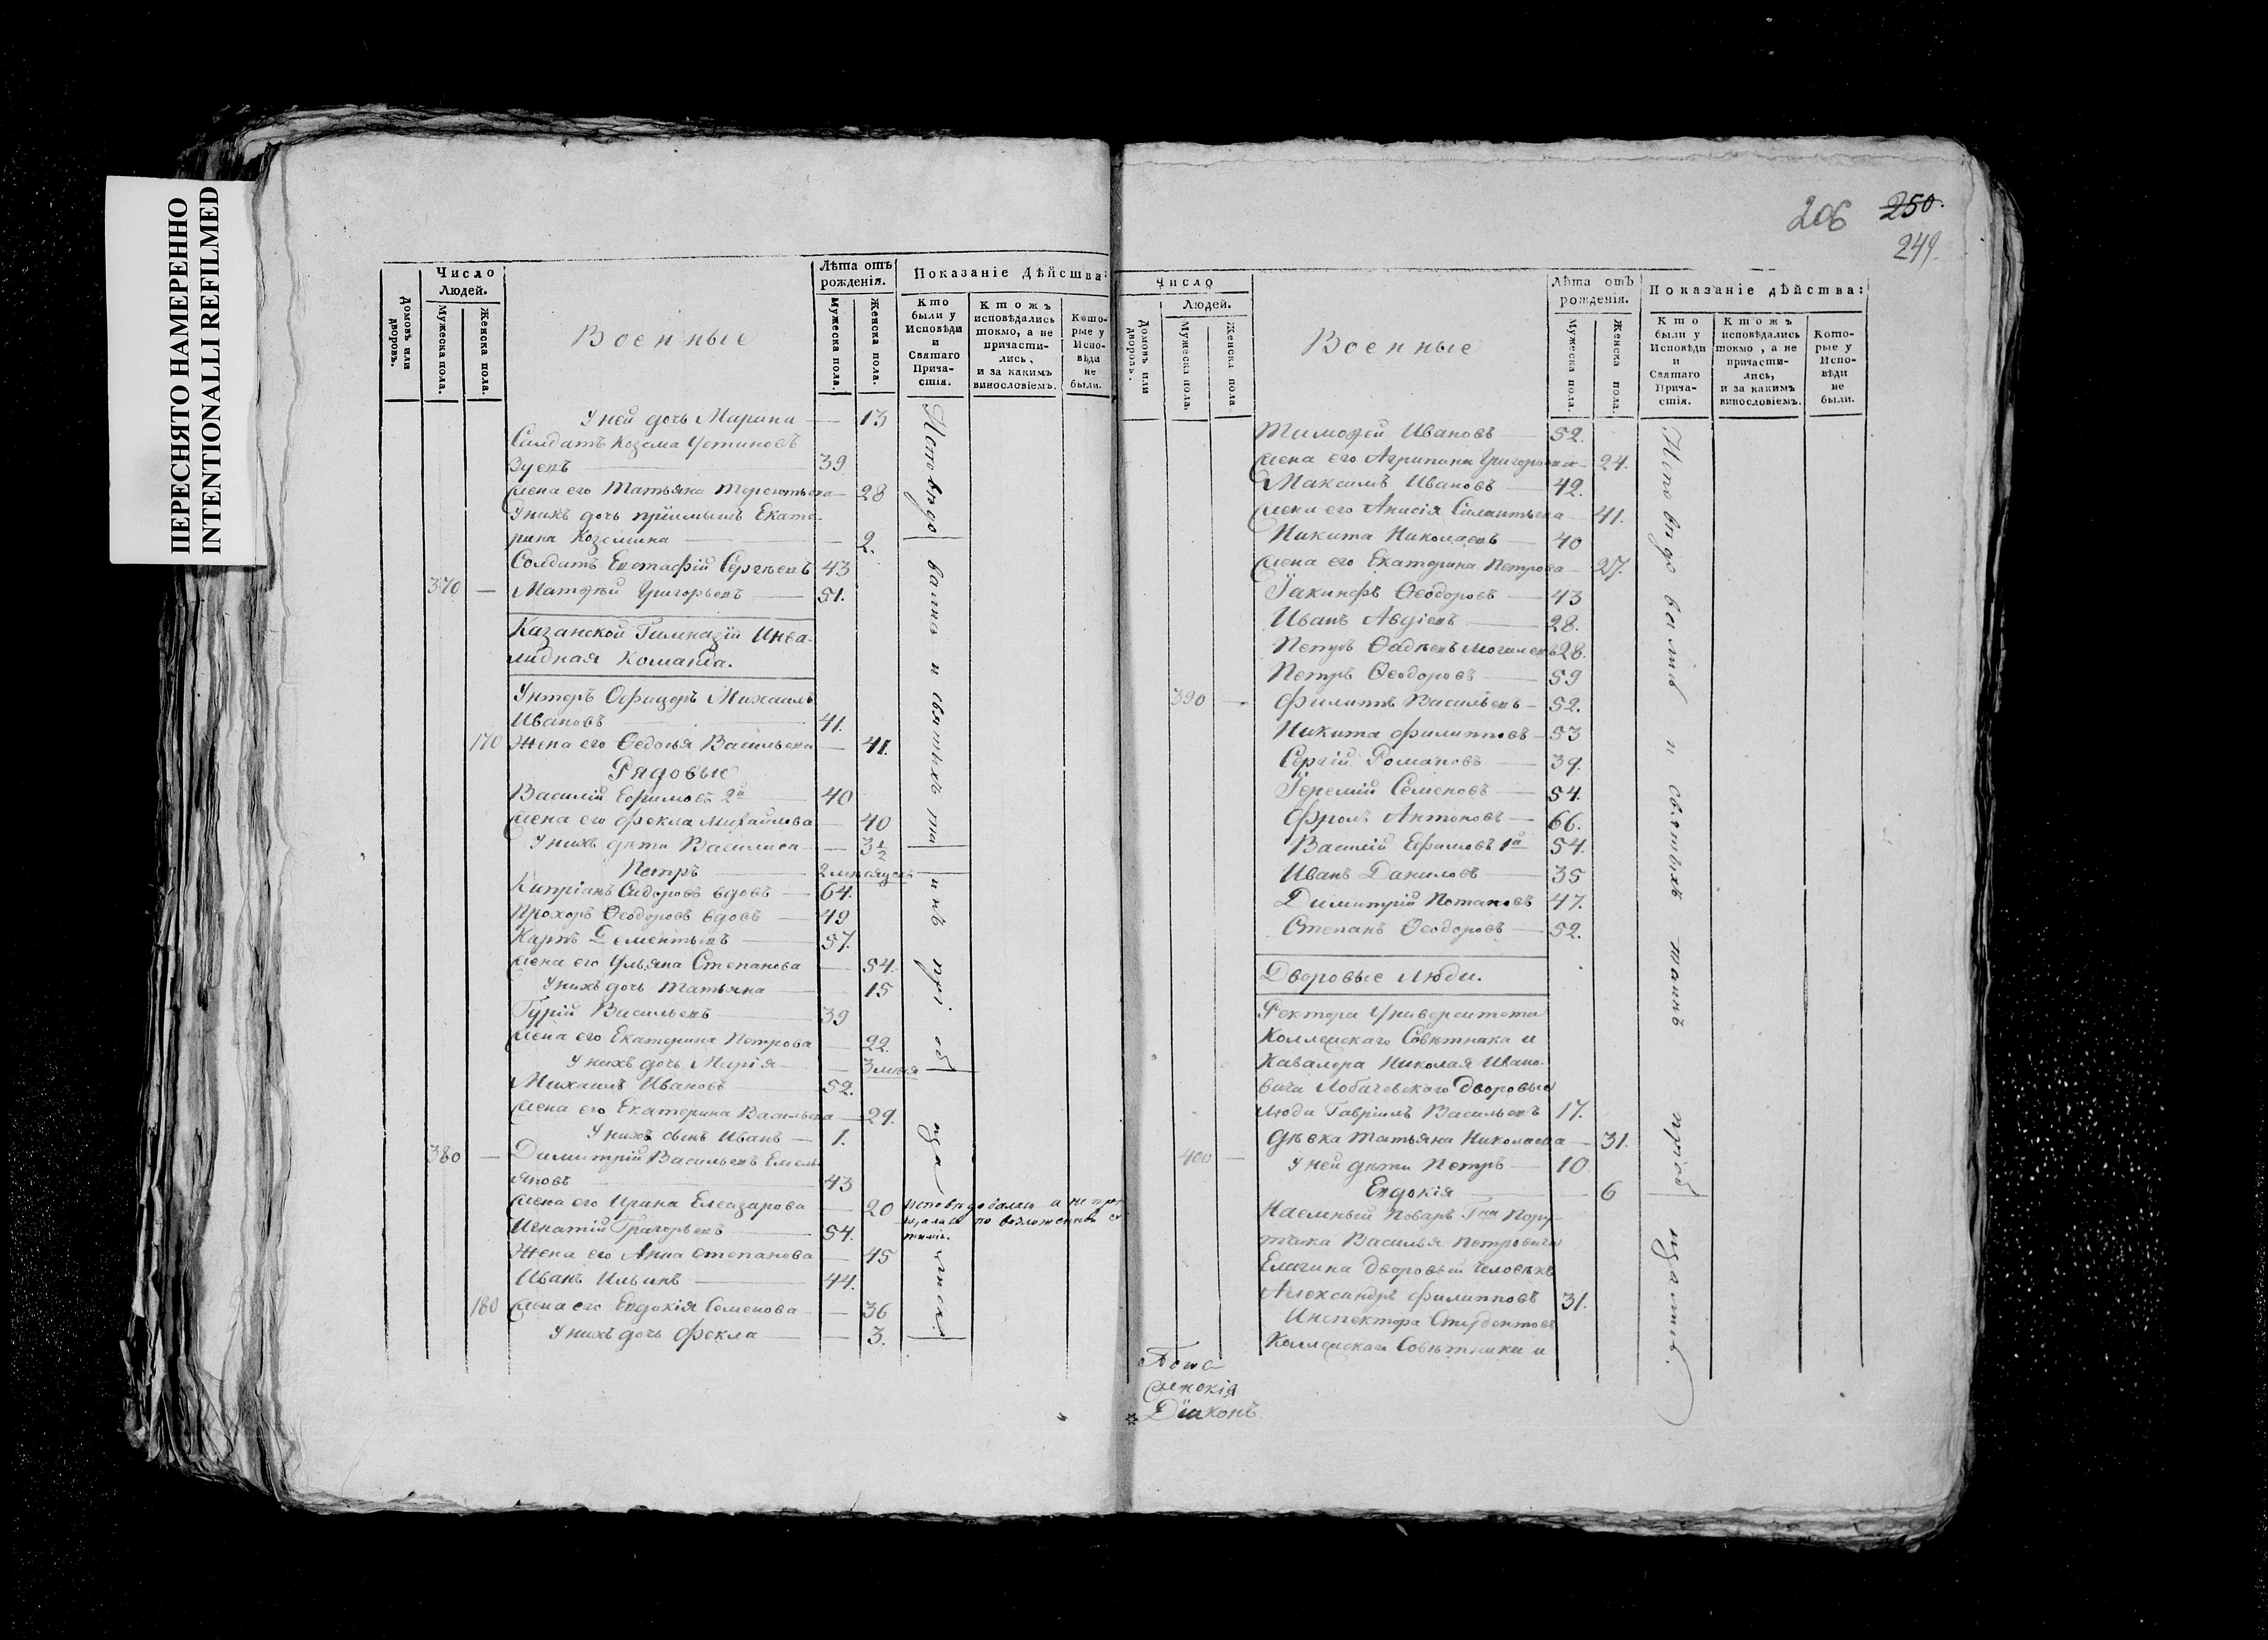 ПЕРЕСНЯТО НАМЕРЕННО
INTENTIONALLI REFILMED
Домовъ или дворовъ.
Число Людей.
Мужеска пола.
Женска пола.
Военные
Лѣта отъ рожденія.
Мужеска пола.
Женска пола.
Показаніе Дѣйства:
Кто были у Исповѣди и Святаго Прича-стія.
Ктожъ исповѣдались токмо, а не причасти-лись, и за какимъ винословіемъ.
Кото-рые у Испо-вѣди не были.
У ней дочь Марина — 13
Солдатъ Козема Устиновъ
Зуевъ — 39
Жена его Татьяна Терентьева — 28
У нихъ дочь пріимышъ Екате-
рина Коземина — 2.
Солдатъ Евстафій Сергѣевъ 43
370 — Матѳей Григорьевъ — 51.
Казанской Гимназіи Инва-
лидная Команда.
Унтеръ Офицеръ Михаилъ
Ивановъ — 41.
170 Жена его Ѳедосья Васильева — 41.
Рядовые
Василій Ефимовъ 2й — 40
Жена его Фекла Михайлова — 40
У нихъ дѣти Василиса — 3 1/2
Петръ — 2 мѣсяцевъ
Кипріанъ Сидоровъ вдовъ — 64.
Прохоръ Ѳеодоровъ вдовъ — 49
Карпъ Дементьевъ — 57.
Жена его Ульяна Степанова — 54.
У нихъ дочь Татьяна — 15
Гурій Васильевъ — 39
Жена его Екатерина Петрова — 22.
У нихъ дочь Марія — 3 мѣся
Михаилъ Ивановъ — 52.
Жена его Екатерина Васильева — 29.
У нихъ сынъ Иванъ — 1.
380 — Димитрій Васильевъ Емель-
яновъ — 43
Жена его Ирина Елеазарова — 20
Игнатій Григорьевъ — 54.
Жена его Анна Степанова — 45
Иванъ Ильинъ — 44.
180 Жена его Евдокія Семенова — 36
У нихъ дочь Фекла — 3.
206 250.
249.
Домовъ или дворовъ.
Число Людей.
Мужеска пола.
Женска пола.
Военные
Лѣта отъ рожденія.
Мужеска пола.
Женска пола.
Показаніе дѣйства:
Кто были у Исповѣди и Святаго Прича-стія.
Ктожъ исповѣдались токмо, а не причасти-лись, и за какимъ винословіемъ.
Кото-рые у Испо-вѣди не были.
Тимоѳей Ивановъ — 52.
Жена его Агрипина Григорьева — 24.
Максимъ Ивановъ — 42.
Жена его Анисія Силантьева — 41.
Никита Николаевъ — 40
Жена его Екатерина Петрова — 27.
Іакинфъ Ѳеодоровъ — 43
Иванъ Авдіевъ — 28.
Петръ Ѳадѣевъ 28.
Петръ Ѳеодоровъ — 59
390 — Филиппъ Васильевъ — 52.
Никита Филипповъ — 53
Сергій Романовъ — 39.
Іеремій Семеновъ — 54.
Фролъ Антоновъ — 66.
Василій Ефимовъ 1й 54.
Иванъ Даниловъ — 35
Димитрій Потаповъ 47.
Степанъ Ѳеодоровъ — 52.
Дворовые Люди.
Ректора Университета
Коллежскаго Совѣтника и
Кавалера Николая Ивано-
вича Лобачевскаго дворовые
Люди Гавріилъ Васильевъ 17.
дѣвка Татьяна Николаева — 31.
400 — У ней дѣти Петръ — 10
Евдокія — 6
Наемный Поваръ Гна Пору-
тчика Василья Петровича
Елагина Дворовый Человѣкъ
Александръ Филипповъ 31.
Инспектора Студентовъ
Коллежскаго Совѣтника и
Діаконъ